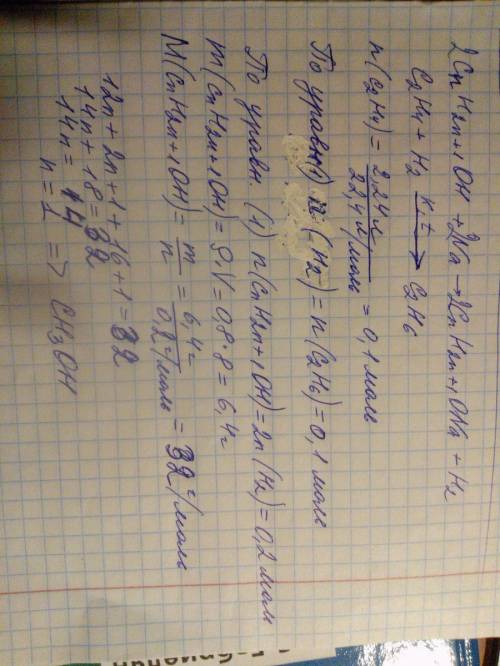 2CnH2n+1OH + 2Na → 2CnH2n+1ONa + H2
C2H4 + H2 —кт→ C2H6
n(C2H4) = 2,24 л / 22,4 л/моль = 0,1 моль
По уравн) n (H2) = n(C2H6) = 0,1 моль
По уравн. (1) n(CnH2n+1OH) = 2n(H2) = 0,2 моль
m(CnH2n+1OH) = ρ·V = 0,8·8 = 6,4 г
M(CnH2n+1OH) = m / n = 6,4 г / 0,2 моль = 32 г/моль
12n + 2n + 1 + 16 + 1 = 32
14n + 18 = 32
14n = 14
n = 1 => CH3OH